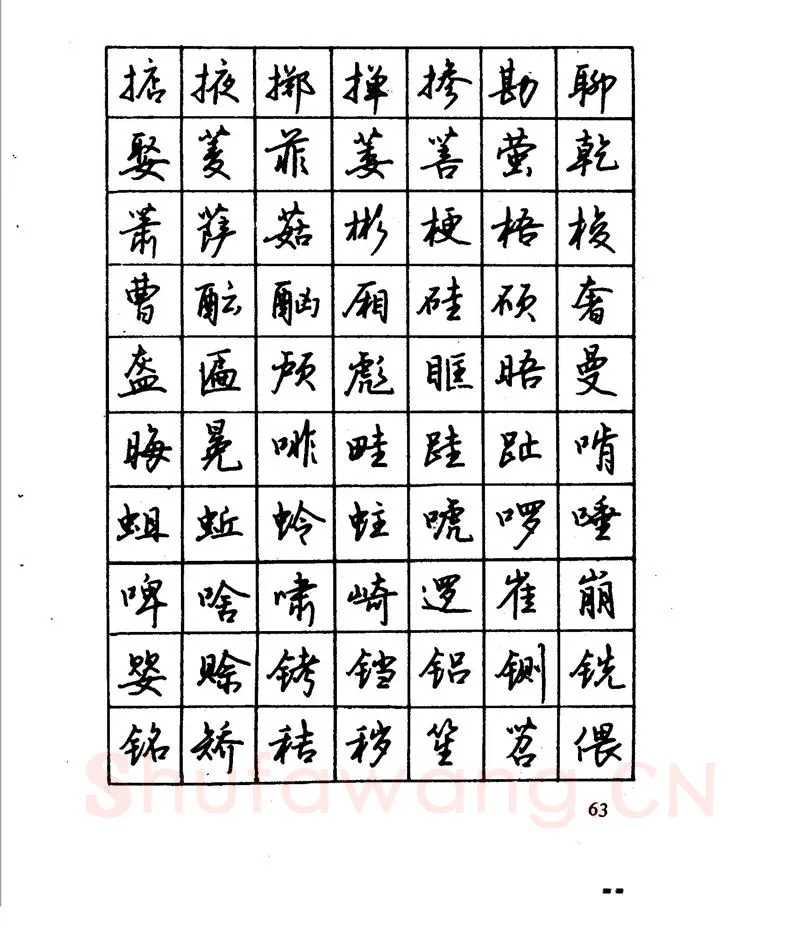 掂掖掷掸掺勘聊
娶菱菲萎菩萤乾
萧萨菇彬梗梧梭
曹酝酗厢硅硕奢
盔匾颅彪眶晤曼
晦冕啡畦跬趾啃
蛆蚯蛉蛀唬啰唾
啤啥啸崎逻崔崩
婴赊铐铛铝铡铣
铭矫秸秽笙笤偎
Shufawang.CN
63